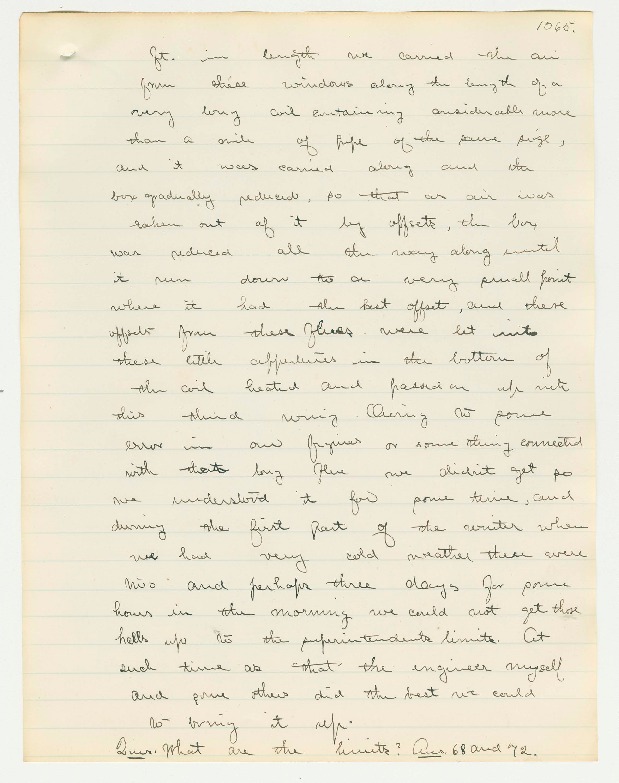 1065.
ft. in length we carried the air
from these windows along the length of a
very long coil containing considerable more
than a mile of pipe of the same size,
and it was carried along and the
box gradually reduced, so that as air was
taken out of it by offsets, the box
was reduced all the way along until
it run down to a very small point
where it had the last offset, and these
offsets from these flues were let into
these little appertures in the bottom of
the coil heated and passed on up into
this third wing. Owing to some
error in our figures or some thing connected
with that long flue we didn't get so
we understood it for some time, and
during the first part of the winter when
we had very cold weather there were
two and perhaps three days for some
hours in the morning we could not get those
halls up to the superintendents limits. At
such time as that the engineer myself
and some others did the best we could
to bring it up.
Ques. What are the limits? Ans. 68 and 72.